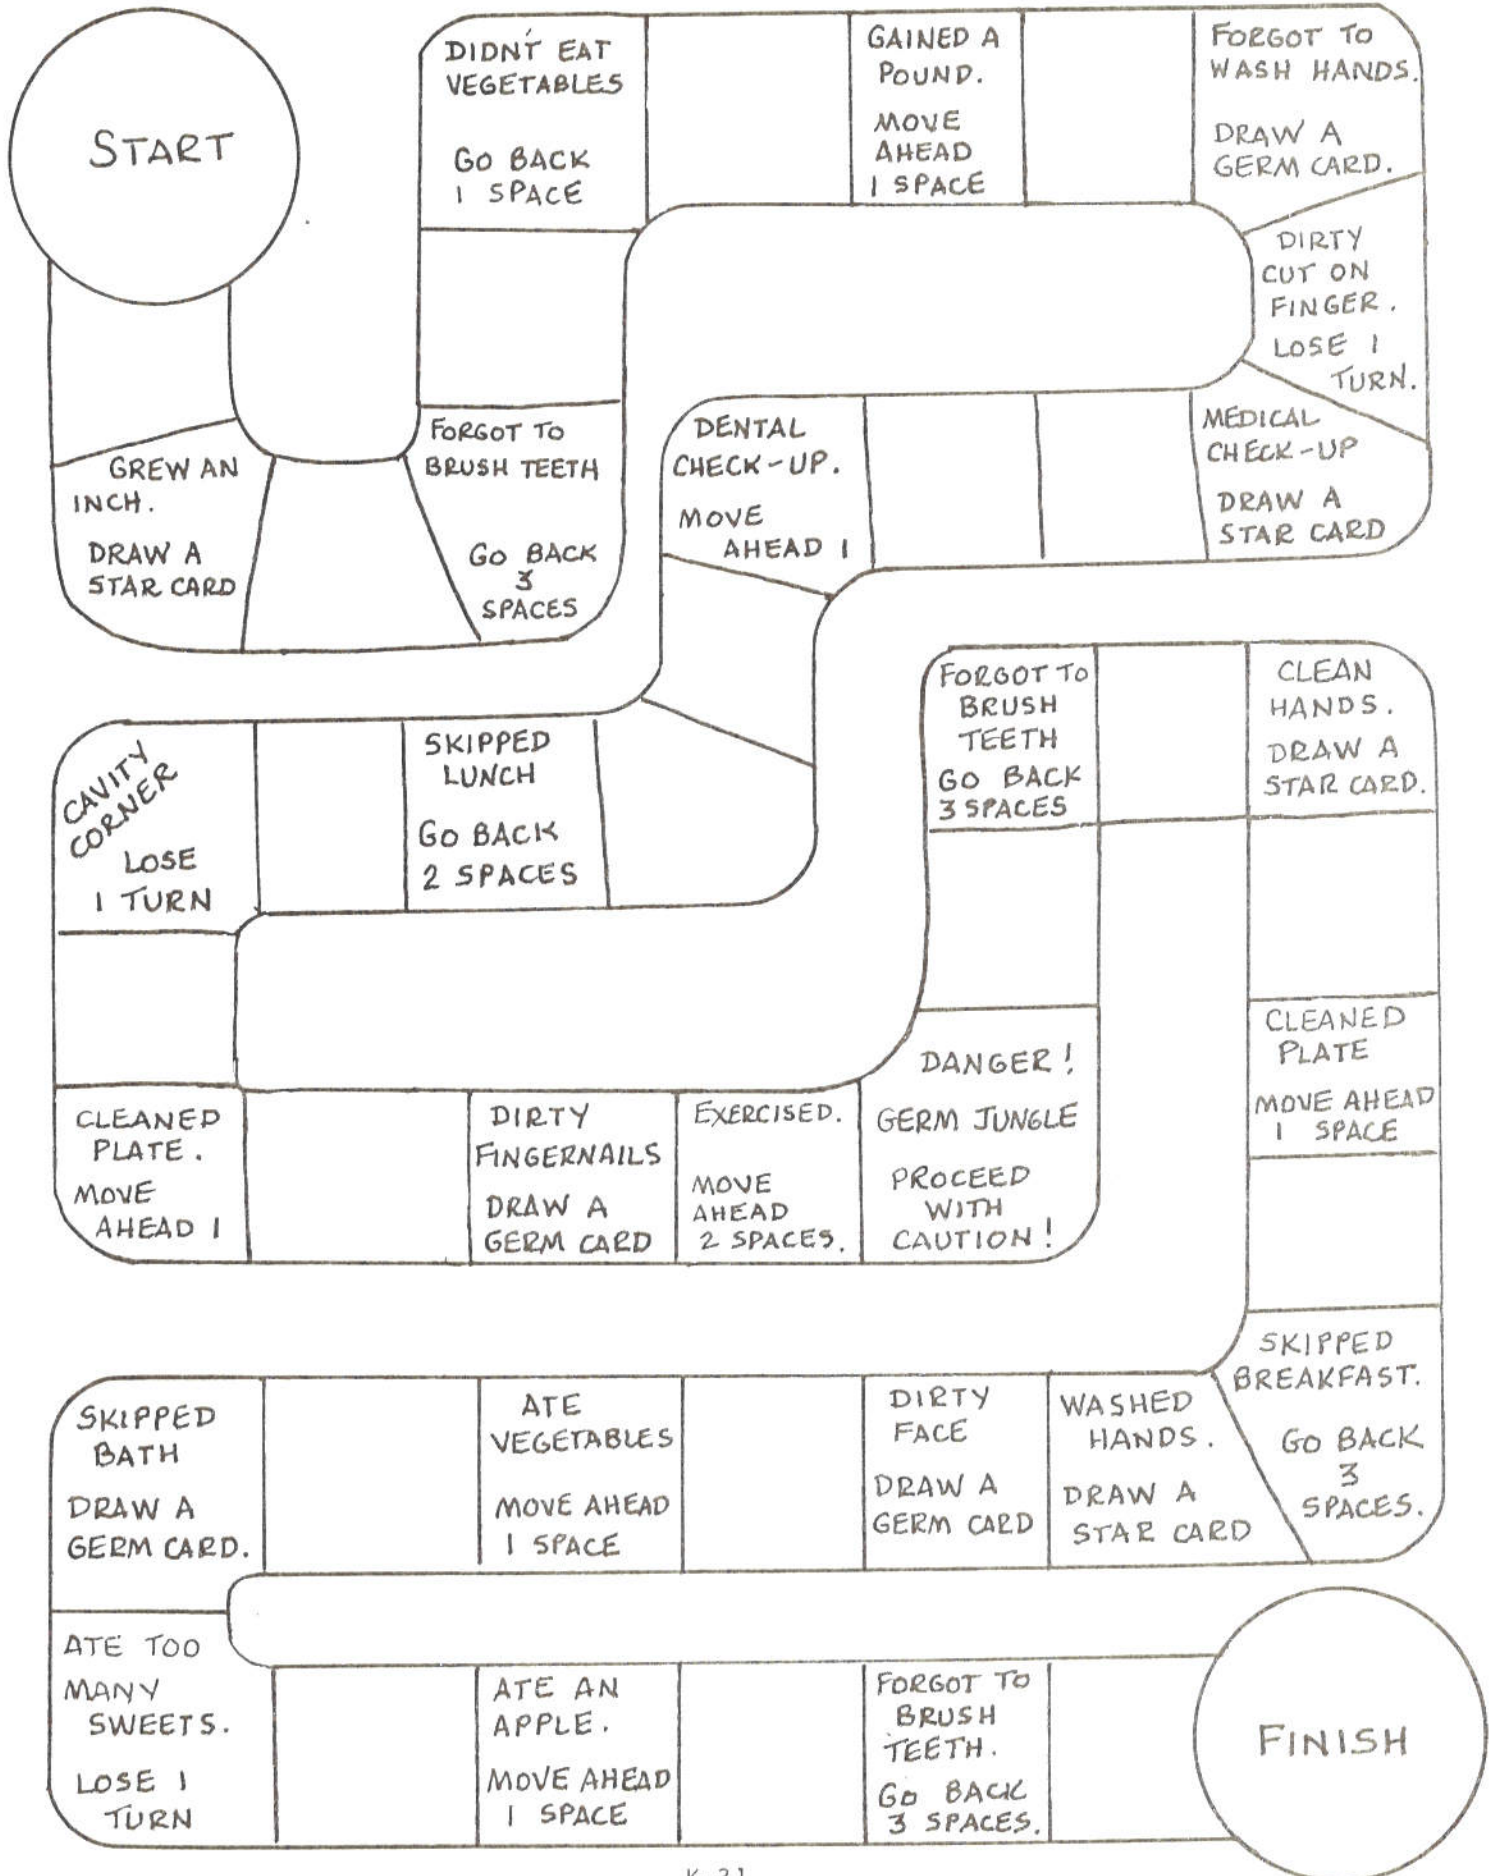 START
GREW AN
INCH.
DRAW A
STAR CARD
FORGOT TO
BRUSH TEETH
GO BACK
3
SPACES
DIDN'T EAT
VEGETABLES
GO BACK
1 SPACE
GAINED A
POUND.
MOVE
AHEAD
1 SPACE
FORGOT TO
WASH HANDS.
DRAW A
GERM CARD.
DIRTY
CUT ON
FINGER.
LOSE 1
TURN.
MEDICAL
CHECK-UP
DRAW A
STAR CARD
DENTAL
CHECK-UP.
MOVE
AHEAD 1
SKIPPED
LUNCH
GO BACK
2 SPACES
CAVITY
CORNER
LOSE
1 TURN
CLEANED
PLATE.
MOVE
AHEAD 1
DIRTY
FINGERNAILS
DRAW A
GERM CARD
EXERCISED.
MOVE
AHEAD
2 SPACES.
DANGER!
GERM JUNGLE
PROCEED
WITH
CAUTION!
FORGOT TO
BRUSH
TEETH
GO BACK
3 SPACES
CLEAN
HANDS.
DRAW A
STAR CARD.
CLEANED
PLATE
MOVE AHEAD
1 SPACE
SKIPPED
BREAKFAST.
GO BACK
3
SPACES.
WASHED
HANDS.
DRAW A
STAR CARD
DIRTY
FACE
DRAW A
GERM CARD
ATE
VEGETABLES
MOVE AHEAD
1 SPACE
SKIPPED
BATH
DRAW A
GERM CARD.
ATE TOO
MANY
SWEETS.
LOSE 1
TURN
ATE AN
APPLE.
MOVE AHEAD
1 SPACE
FORGOT TO
BRUSH
TEETH.
GO BACK
3 SPACES.
FINISH